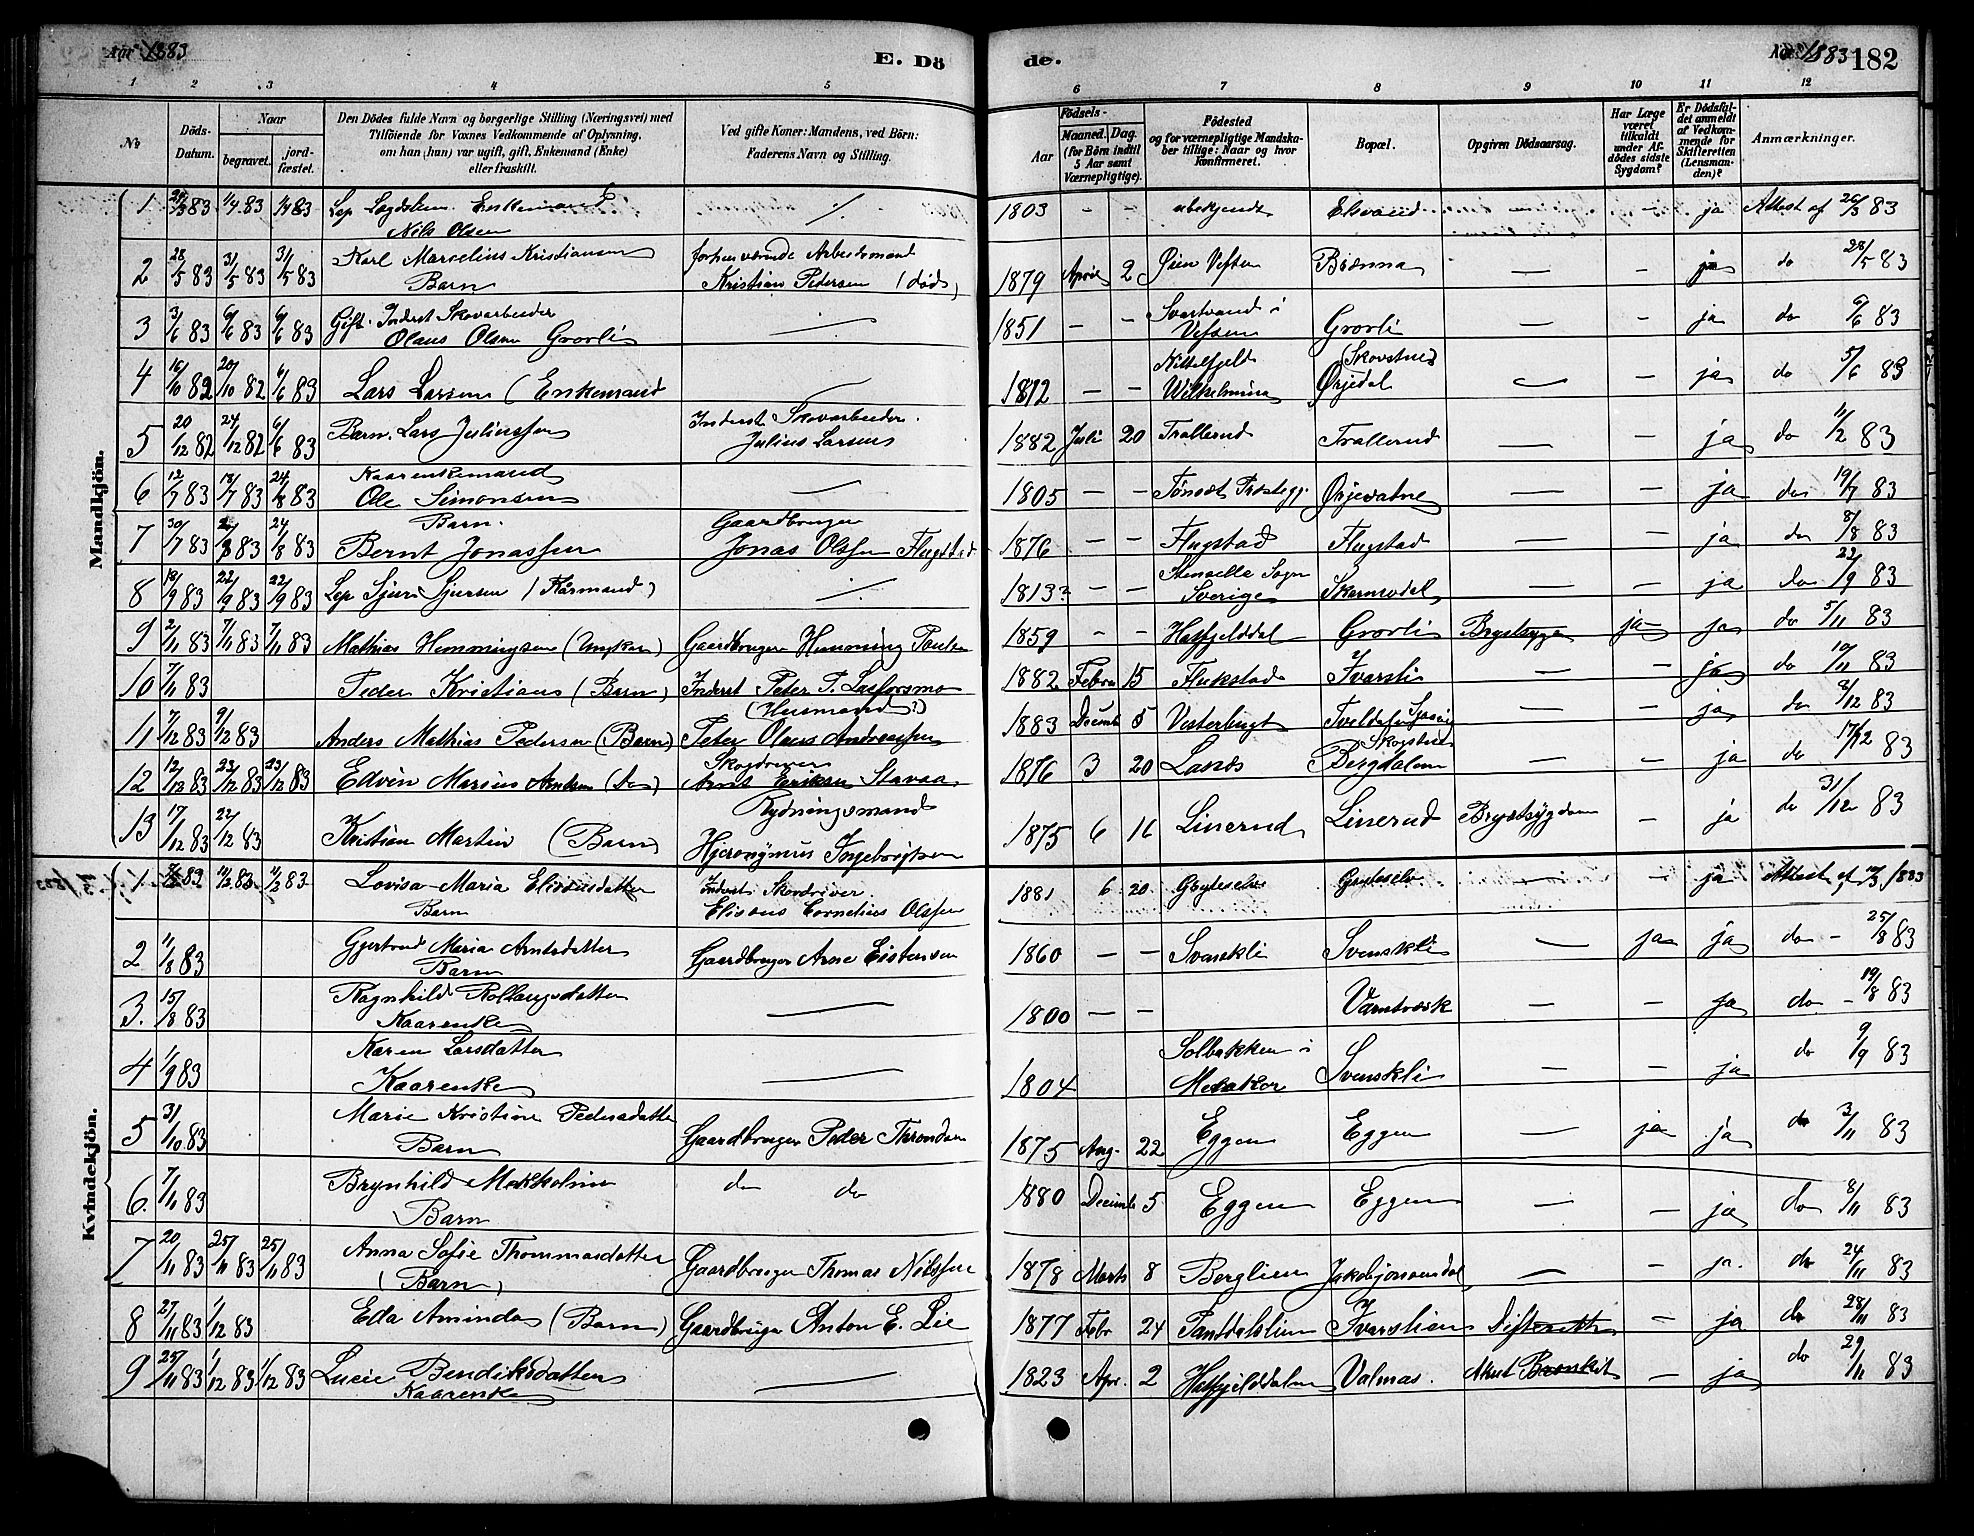 Aar 1883
E. Dö
de.
Aar 1883 182
1 2 3 4 5 6 7 8 9 10 11 12
No
Döds-Datum.
Naar
begravet.
jord-fæstet.
Den Dödes fulde Navn og borgerlige Stilling (Næringsvei) med
Tilföiende for Voxnes Vedkommende af Oplysning,
om han (hun) var ugift, gift, Enkemand (Enke)
eller fraskilt.
Ved gifte Koner: Mandens, ved Börn:
Faderens Navn og Stilling.
Födsels-
Aar
Maaned. Dag.
(for Börn indtil
5 Aar samt
Værnepligtige).
Födested
og for værnepligtige Mandska-
ber tillige: Naar og hvor
konfirmeret.
Bopæl.
Opgiven Dödsaarsag.
Har Læge
været
tilkaldt
under Af-
dödes sidste
Sygdom?
Er Dödsfal-
det anmeldt
af Vedkom-
mende for
Skifteretten
(Lensman-
den)?
Anmærkninger.
Mandkjön.
1 83 1/4 83 1/4 83 Lap Enkemand Nils Olsen 1803 - - ubekjendt - - ja Attest af 26/3 83
2 28/5 83 31/5 83 31/5 83 Karl Marselius Kristiansen Barn forhenværende Arbeidsmand Kristian Pedersen (död) 1879 April 2 Øien Vefsen - - ja do 28/5 83
3 3/6 83 6/6 83 6/6 83 Gift Inderst Skovarbeider Olaus Olsen Grovli - 1851 - - Svartvand i Vefsen Grovli - - ja do 6/6 83
4 16/10 82 20/10 82 6/6 83 Lars Larsen (Enkemand - 1812 - - Kittelfjeld Wilhelmina (Skovstue) Ørjedal - - ja do 5/6 83
5 20/12 82 24/12 82 6/6 83 Barn. Lars Juliussen Inderst Skovarbeider. Julius Larsens 1882 Juli 20 Trallerud Trallerud - - ja do 11/2 83
6 12/7 83 18/7 83 24/8 83 Kaarenkemand Ole Simonsen - 1805 - - Tønset Ørjevatne - - ja do 19/7 83
7 30/7 83 83 24/8 83 Barn. Bernt Jonassen Gaardbruger Jonas Olsen Flugstad 1876 - - Flugstad Flugstad - - ja do 8/8 83
8 19/9 83 22/9 83 22/9 83 Lap Sjur Sjursen (Kårmand) ./. 1813? - - Stensele Sogn Sverige Skarmodal - - ja do 22/9 83
9 2/11 83 7/11 83 7/11 83 Mathias Hemmingsen (Ungkar) Gaardbruger Hemming 1859 - - Hatfjelddal Grovli Brystsyge ja ja do 5/11 83
10 7/11 83 Peder Kristian (Barn) Inderst Peter P. Laxforsmo (Husmand?) 1882 Febru 15 Flukstad Ivarsli - - ja do 10/11 83
11 7/12 83 9/12 83 Anders Mathias Pedersen (Barn) Peter Olaus Andreassen 1883 Decemb 5 Vesterbugt - - ja do 8/12 83
12 12/12 83 23/12 83 23/12 83 Edvin Marius Arntsen (do) Skogdriver Arnt Eriksen Stavaa 1876 3 20 Lanæs Skogstue Bergdalen - - ja do 17/12 83
13 17/12 83 22/12 83 Kristian Martin (Barn) Rydningsmand Hjeronymus Ingebrigtsen 1875 6 16 Linerud Linerud Brystsygdom - ja do 31/12 83
Kvindekjön.
1 83 11/3 83 11/3 83 Lovisa Maria Eliseusdatter Barn Inderst Skovdriver. Eliseus Cornelius Olsen 1881 6 20 Gryteselv Gryteselv - - ja Attest af 12/3 1883
2 11/8 83 Gjertrud Maria Arntsdatter Barn Gaardbruger Arne Eistensen 1860 - - Svenskli Svenskli - ja ja do - 25/8 83
3. 15/8 83 Ragnhild Rollaugsdatter Kaarenke - 1800 - - Varntræsk - - ja do - 19/8 83
4 1/9 83 Karen Larsdatter Kaarenke - 1804 Solbakken i Meraker Svenskli ja do 9/9 83
5 31/10 83 Marie Kristine Pedersdatter Barn Gaardbruger Peder Throndsen 1875 Aug. 22 Eggen Eggen - ja ja do 3/11 83
6. 7/11 83 Brynhild Barn do do 1880 Decemb 5 Eggen Eggen - - ja do 8/11 83
7 20/11 83 25/11 83 25/11 83 Anna Sofie Thommasdatter (Barn) Gaardbruger Thomas Nilssen 1878 Marts 8 Berglien Jakobjonsendal - - ja. do 24/11 83
8 27/11 83 1/12 83 Eda Aminda (Barn) Gaardbruger Anton E. Lie 1877 Febr 24 Ivarslien Difteritis - ja do 28/11 83
9 25/11 83 1/12 83 1/12 83 Lucie Bendiksdatter Kaarenke - 1823 Apr. 2 Hatfjelddalen Valmas. Akut Bronkit - ja do 29/11 83